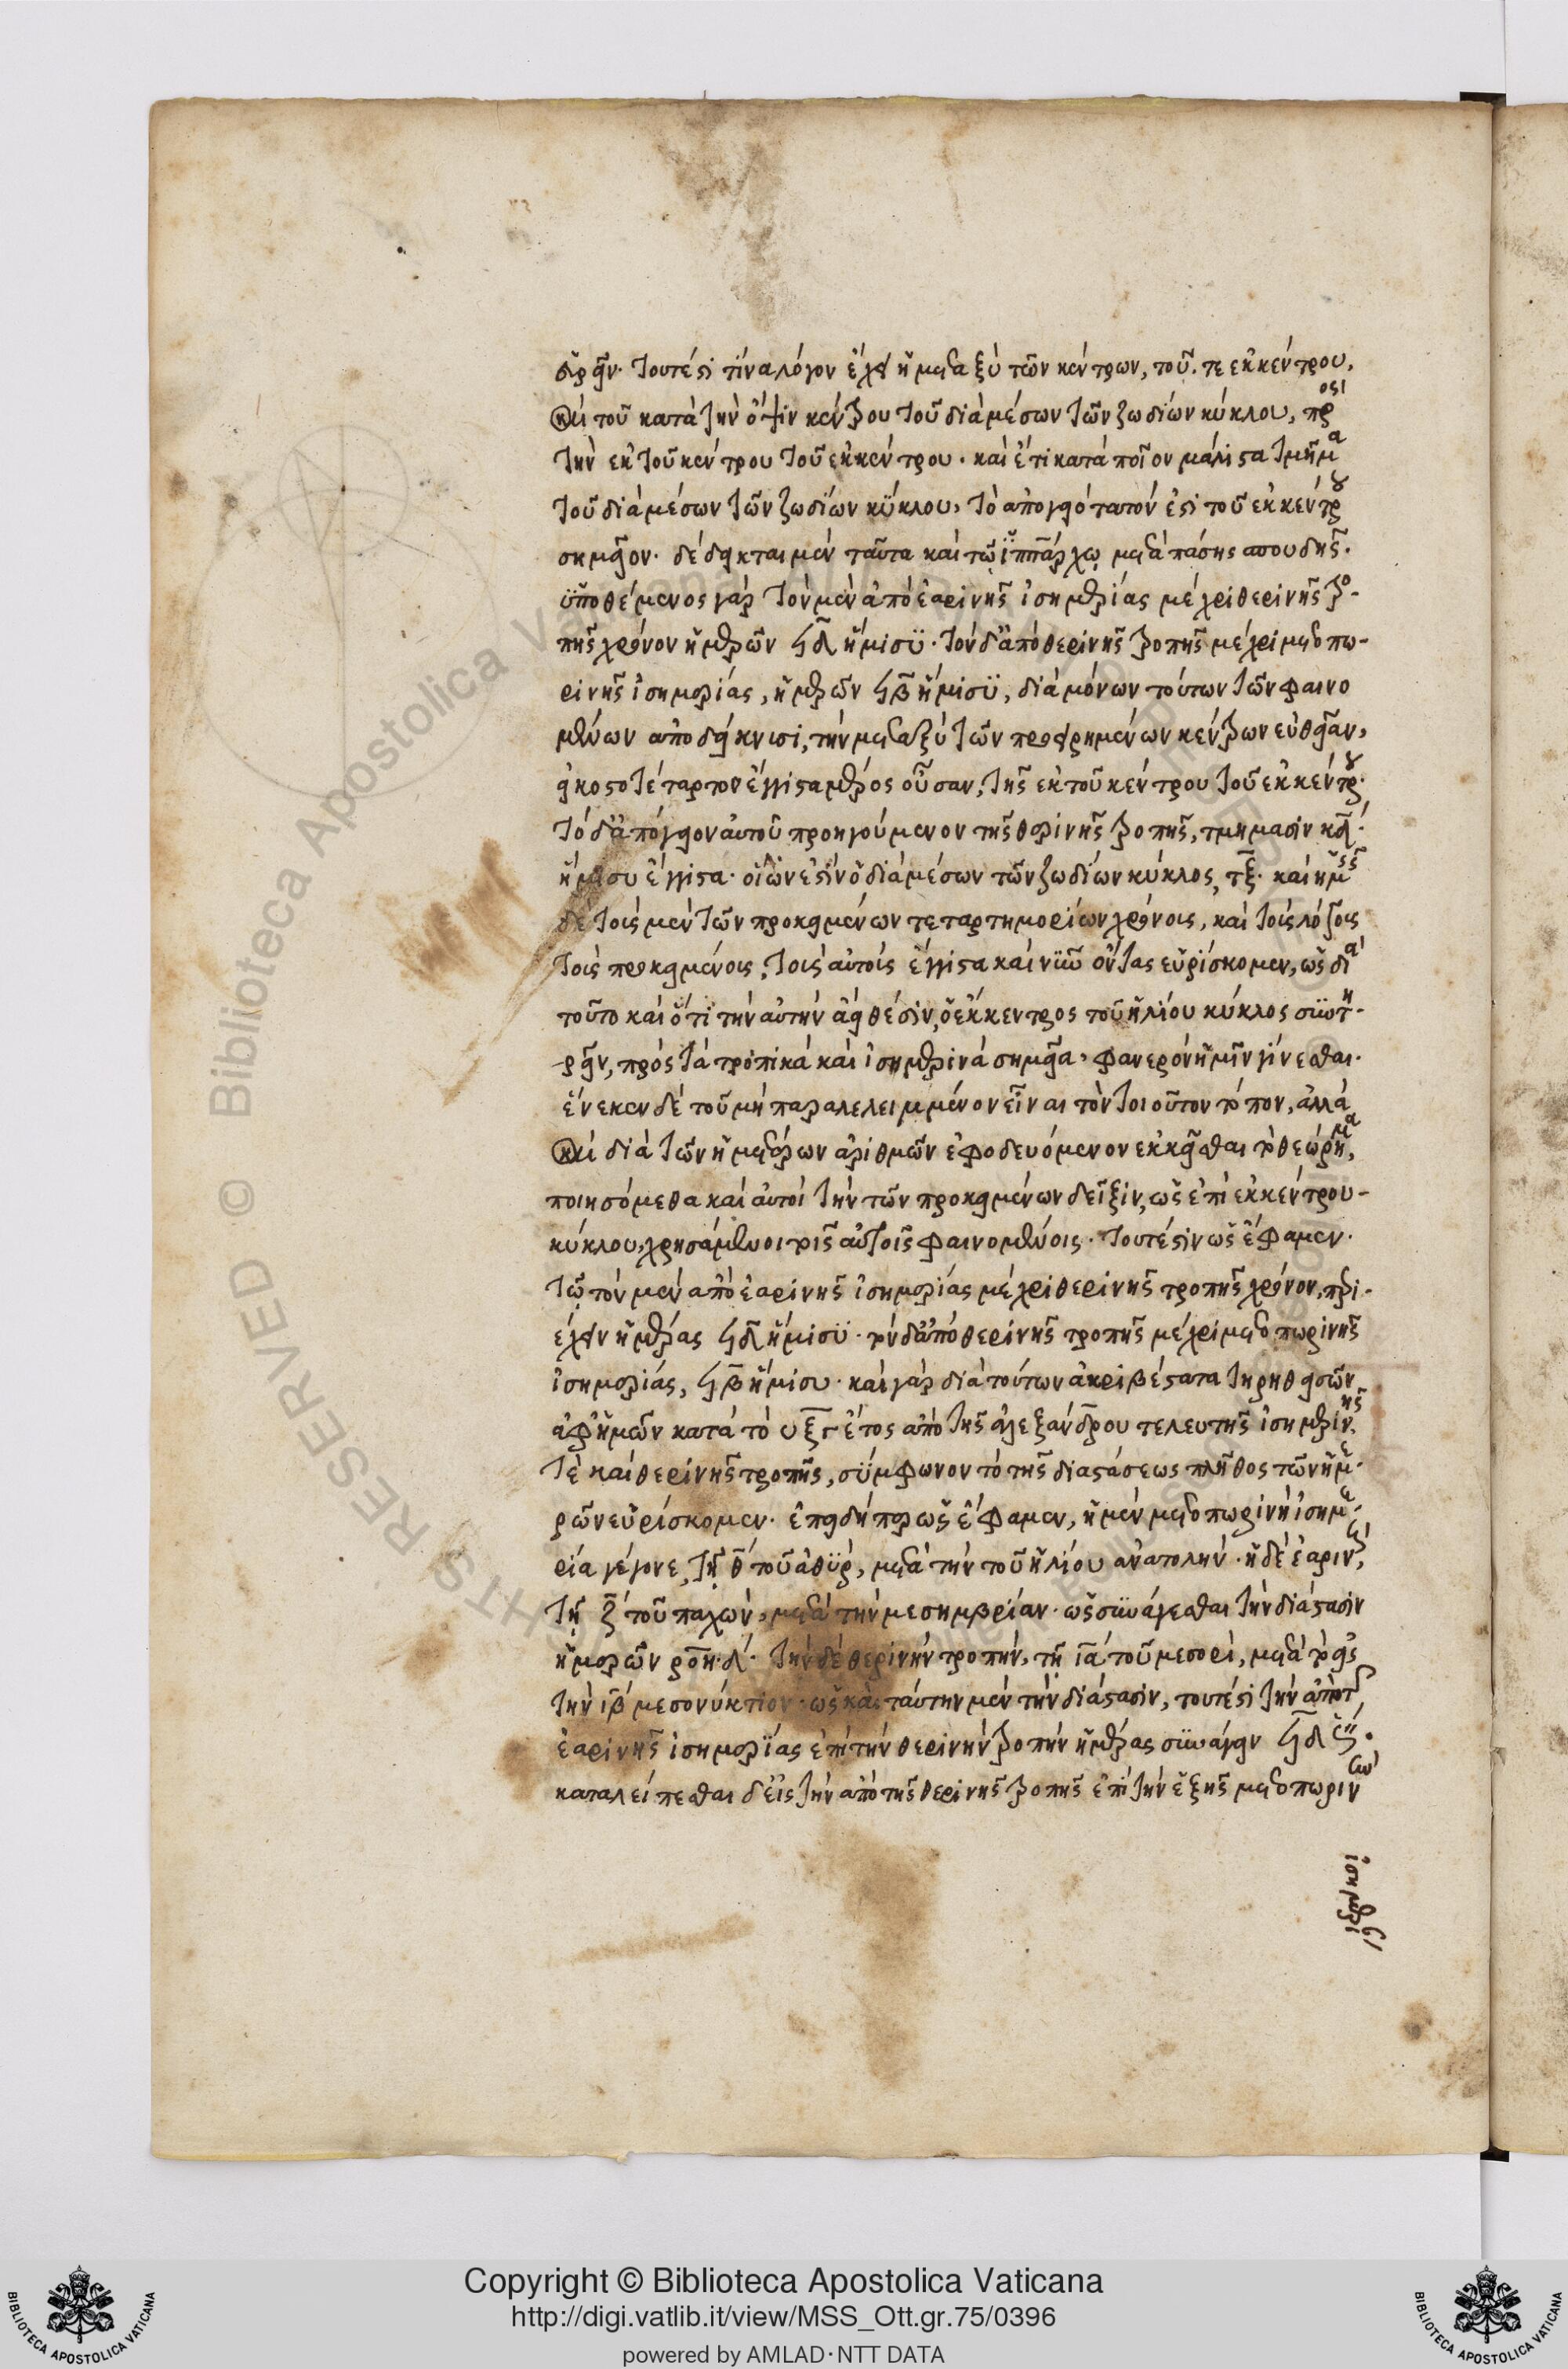 εὑρεῖν· τουτέστι τίνα λόγον ἔχει ἡ μεταξὺ τῶν κέντρων, τοῦ τε ἐκκέντρου,
καὶ τοῦ κατὰ τὴν ὄψιν κέντρου τοῦ διὰ μέσων τῶν ζωδίων κύκλου, πρὸς
τὴν ἐκ τοῦ κέντρου τοῦ ἐκκέντρου· καὶ ἔτι κατὰ ποῖον μάλιστα τμῆμα
τοῦ διὰ μέσων τῶν ζωδίων κύκλου, τὸ ἀπογειότατόν ἐστι τοῦ ἐκκέντρου
σημεῖον· δέδεικται μὲν ταῦτα καὶ τῷ ἱππάρχῳ μετὰ πάσης σπουδῆς·
ὑποθέμενος γὰρ τὸν μὲν ἀπὸ ἐαρινῆς ἰσημερίας μέχρι θερινῆς τρο-
πῆς χρόνον ἡμερῶν ϟδ ἥμισυ· τὸν δ' ἀπὸ θερινῆς τροπῆς μέχρι μετοπω-
ρινῆς ἰσημερίας, ἡμερῶν ϟβ ἥμισυ, διὰ μόνων τούτων τῶν φαινο
μένων ἀποδείκνυσι, τὴν μεταξὺ τῶν προειρημένων κέντρων εὐθεῖαν,
εἰκοστοτέταρτον ἔγγιστα μέρος οὖσαν, τῆς ἐκ τοῦ κέντρου τοῦ ἐκκέντρου·
τὸ δ' ἀπόγειον αὐτοῦ προηγούμενον τῆς θερινῆς τροπῆς, τμήμασιν κδ·
ἥμισυ ἔγγιστα· οἵων ἐστὶν ὁ διὰ μέσων τῶν ζωδίων κύκλος, τξ· καὶ ἡμεῖς
δὲ τοὺς μὲν τῶν προκειμένων τεταρτημορίων χρόνους, καὶ τοὺς λόγους
τοὺς προκειμένους, τοὺς αὐτοὺς ἔγγιστα καὶ νῦν ὄντας εὑρίσκομεν, ὡς διὰ
τοῦτο καὶ ὅτι τὴν αὐτὴν ἀεὶ θέσιν, ὁ ἔκκεντρος τοῦ ἡλίου κύκλος συντη-
ρεῖν, πρὸς τὰ τροπικὰ καὶ ἰσημερινὰ σημεῖα, φανερὸν ἡμῖν γίνεσθαι·
ἕνεκεν δὲ τοῦ μὴ παραλελειμμένον εἶναι τὸν τοιοῦτον τόπον, ἀλλὰ
καὶ διὰ τῶν ἡμετέρων ἀριθμῶν ἐφοδευόμενον ἐκκεῖσθαι τὸ θεώρημα,
ποιησόμεθα καὶ αὐτοὶ τὴν τῶν προκειμένων δεῖξιν, ὡς ἐπὶ ἐκκέντρου-
κύκλου, χρησάμενοι τοῖς αὐτοῖς φαινομένοις· τουτέστιν ὡς ἔφαμεν·
τῷ τὸν μὲν ἀπὸ ἐαρινῆς ἰσημερίας μέχρι θερινῆς τροπῆς χρόνον, περι-
έχειν ἡμέρας ϟδ ἥμισυ· τὸν δ' ἀπὸ θερινῆς τροπῆς μέχρι μετοπωρινῆς
ἰσημερίας, ϟβ ἥμισυ· καὶ γὰρ διὰ τούτων ἀκριβέστατα τηρηθεισῶν
ἀφ' ἡμῶν κατὰ τὸ υξγ ἔτος ἀπὸ τῆς ἀλεξάνδρου τελευτῆς ἰσημερινῆς
τὲ καὶ θερινῆς τροπῆς, σύμφωνον τὸ τῆς διαστάσεως πλῆθος τῶν ἡμε-
ρῶν εὑρίσκομεν· ἐπειδήπερ ὡς ἔφαμεν, ἡ μὲν μετοπωρινὴ ἰσημε-
ρία γέγονε, τῇ θ τοῦ ἀθὺρ, μετὰ τὴν τοῦ ἡλίου ἀνατολήν· ἡ δὲ ἐαρινὴ,
τῇ ζ τοῦ παχὼν, μετὰ τὴν μεσημβρίαν· ὡς συνάγεσθαι τὴν διάστασιν
ἡμερῶν ροη·δ· τὴν δὲ θερινὴν τροπὴν, τῇ ια τοῦ μεσορὶ, μετὰ τὸ εἰς
τὴν ιβ μεσονύκτιον· ὡς καὶ ταύτην μὲν τὴν διάστασιν, τουτέστι τὴν ἀπὸ τῆς
ἐαρινῆς ἰσημερίας ἐπὶ τὴν θερινὴν τροπὴν ἡμέρας συνάγειν ϟδ ϛ″·
καταλείπεσθαι δ' εἰς τὴν ἀπὸ τῆς θερινῆς τροπῆς ἐπὶ τὴν ἑξῆς μετοπωρινὴν
ἰσημερί
Copyright © Biblioteca Apostolica Vaticana
http://digi.vatlib.it/view/MSS_Ott.gr.75/0396
powered by AMLAD·NTT DATA